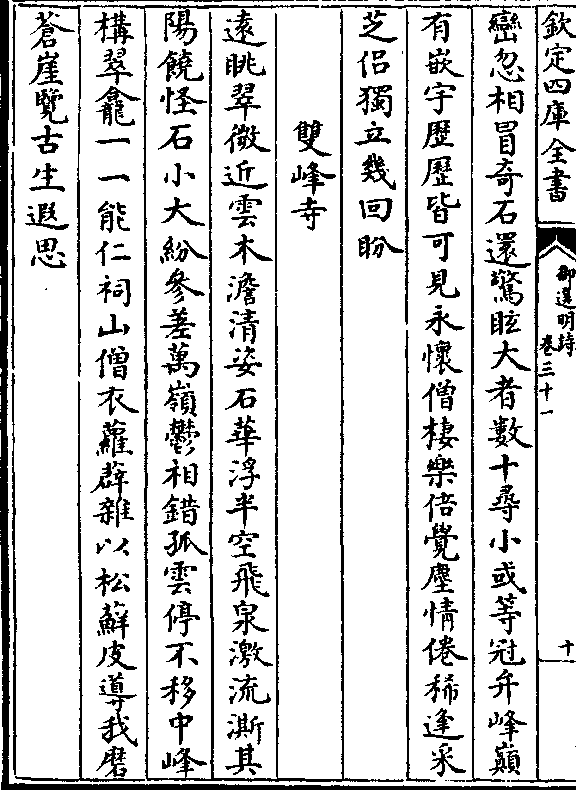 欽定四庫全書
御選明詩
卷三十一
十
巒忽相冒奇石還驚眩大者數十尋小或等冠弁峰巔
有嵌字歷歷皆可見永懷僧棲樂倍覺塵情倦稀逢采
芝侣獨立幾回盻
雙峰寺
遠眺翠微近雲木澹清姿石華浮半空飛泉激流澌其
陽饒怪石小大紛參差萬嶺鬱相錯孤雲停不移中峰
構翠龕一一能仁祠山僧衣蘿薜雜以松蘚皮導我磨
蒼崖覽古生遐思